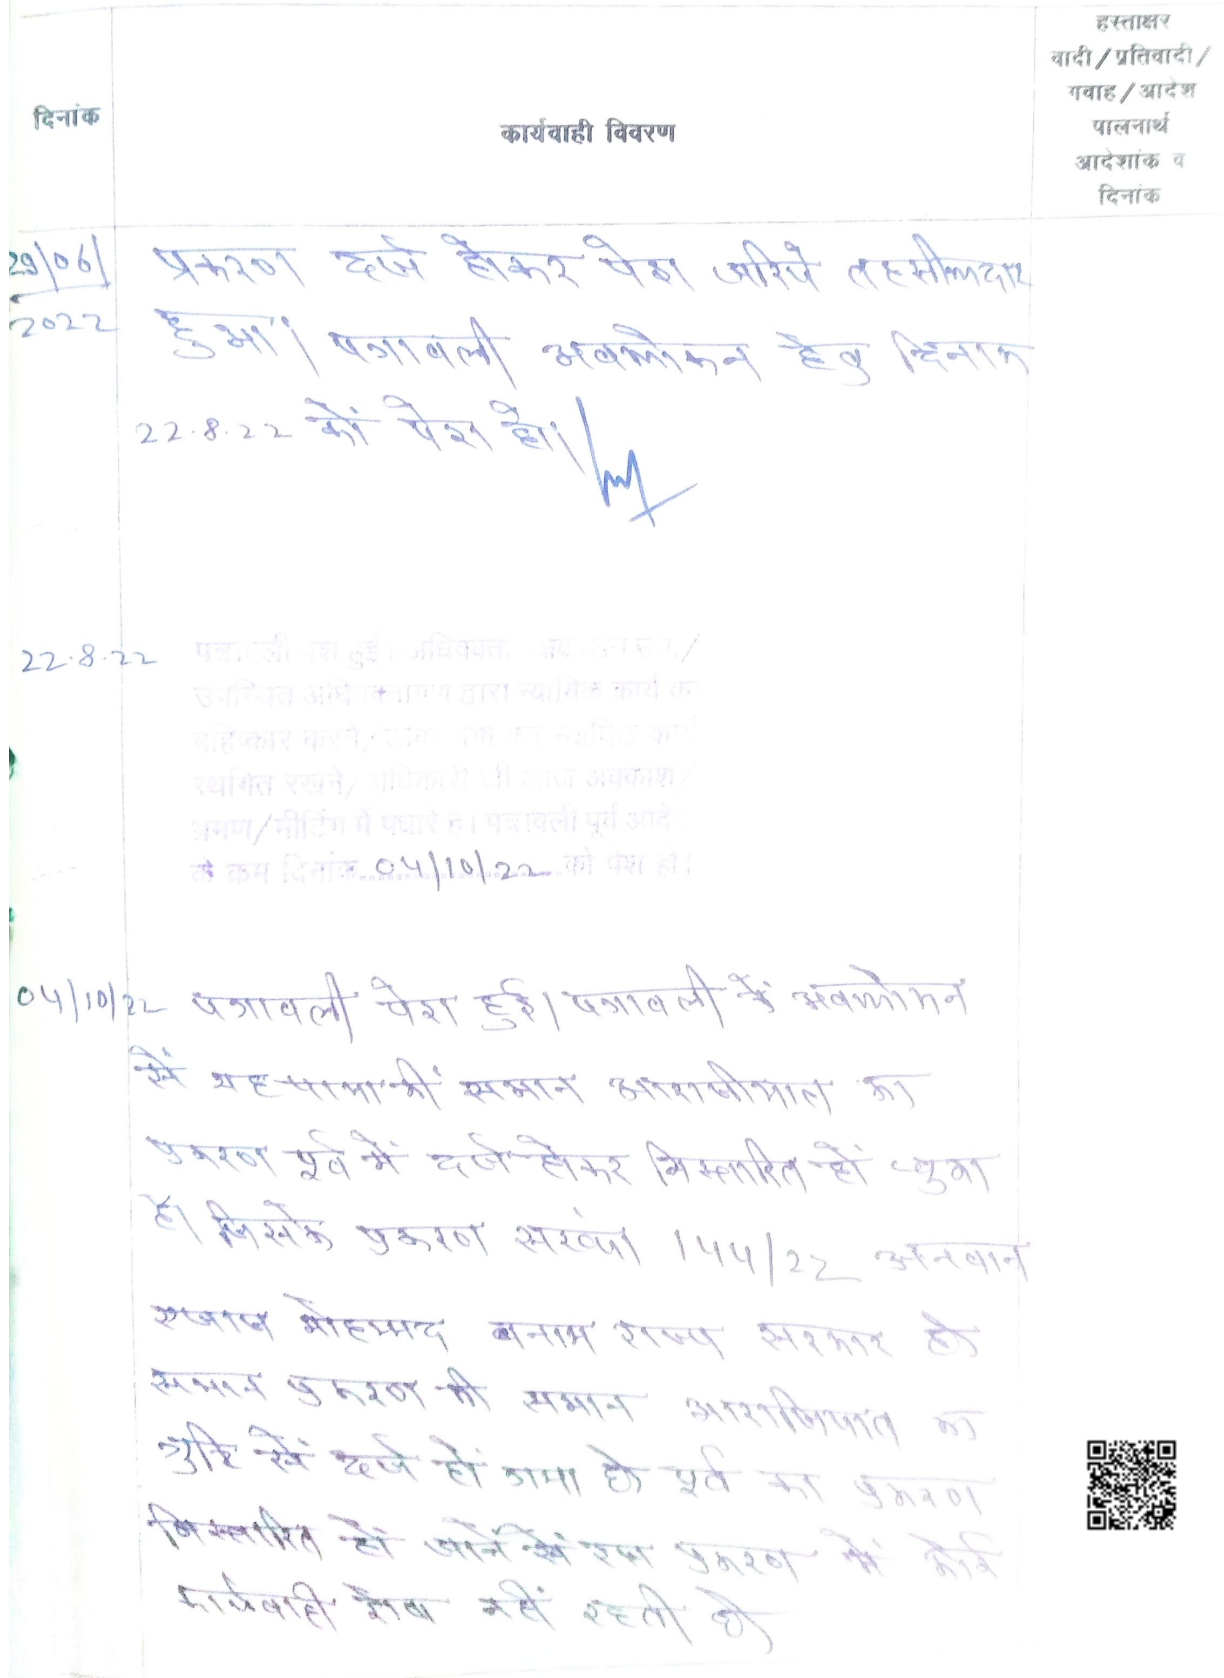 हस्ताक्षर
वादी/प्रतिवादी/
गवाह/आदेश
पालनार्थ
आदेशांक व
दिनांक
दिनांक
कार्यवाही विवरण
29/06/
2022
प्रकरण दर्ज होकर पेश जरिये तहसीलदार
हुआ। पत्रावली अवलोकन हेतु दिनांक
22.8.22 को पेश हो।
22.8.22
पत्रावली पेश हुई। अधिवक्ता
उपस्थित अधिवक्तागण द्वारा न्यायिक कार्य का
बहिष्कार करने, न्यायिक कार्य
स्थगित रखने/अधिकारी जी आज अवकाश/
भ्रमण/मीटिंग में पधारे है। पत्रावली पूर्व आदेश
के क्रम दिनांक 04/10/22 को पेश हो।
04/10/22
पत्रावली पेश हुई। पत्रावली के अवलोकन
से यह पाया की समान आराजीयात का
प्रकरण पूर्व में दर्ज होकर निस्तारित हो चुका
है। जिसके प्रकरण सख्या 144/22 अनवान
एजाज मोहम्मद बनाम राज्य सरकार है
समान प्रकरण की समान आराजियात का
त्रुटि से दर्ज हो गया है पूर्व का प्रकरण
निस्तारित हो जाने से इस प्रकरण में कोई
कार्यवाही शेष नहीं रहती है